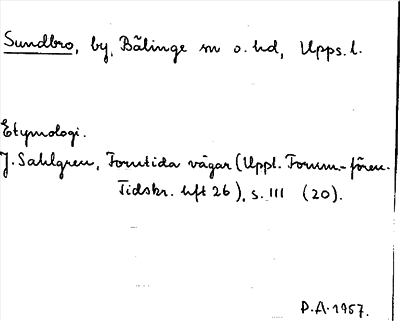 Sundbro, by, Bälinge sn o. hd, Upps. l.
Etymologi.
J. Sahlgren, Forntida vägar (Uppl. Fornm.-fören.
Tidskr. hft 26), s. 111 (20).
P.A. 1957.